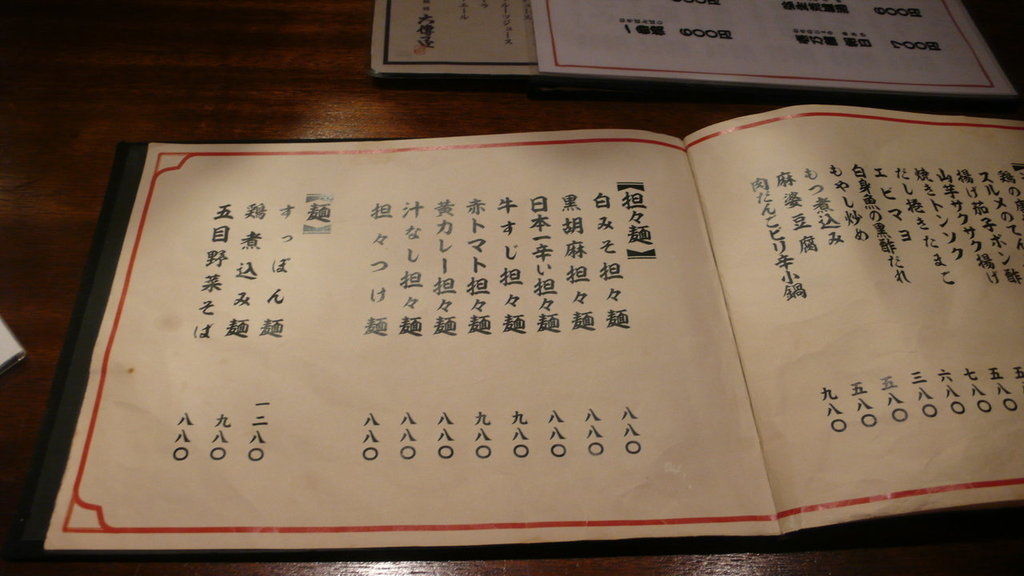 スルメのてん
揚げ茄子ポン酢
山芋サクサク揚げ
焼きトンソク
だし捲きたまご 五八〇
エビマヨ 七八〇
白身魚の黒酢だれ 六八〇
もやし炒め 三八〇
もつ煮込み 五八〇
麻婆豆腐 五八〇
肉だんごピリ辛小鍋 九八〇
【担々麺】
白みそ担々麺 八八〇
黒胡麻担々麺 八八〇
日本一辛い担々麺 八八〇
牛すじ担々麺 九八〇
赤トマト担々麺 九八〇
黄カレー担々麺 八八〇
汁なし担々麺 八八〇
担々つけ麺 八八〇
【麺】
すっぽん麺 一二八〇
鶏煮込み麺 九八〇
五目野菜そば 八八〇